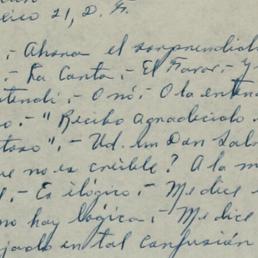 xico 21, D. F.
.- Ahora el sorprendido
- La Carta.- El Favor.- Y
ntendi.- O nó.- O la enten
o.- "Recibo agradecido
toso".- Ud. un Don Sal
re no es creible? A la m
.- Es ilógico.- Me dice
no hay lógica.- Me dice
jado en tal confusión